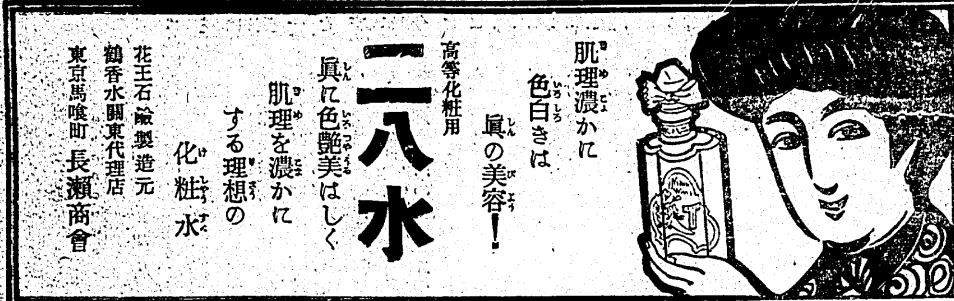 肌理濃かに
色白きは
眞の美容！
高等化粧用
二八水
眞に色艶美はしく
肌理を濃かに
する理想の
化粧水
花王石鹸製造元
鶴香水關東代理店
東京馬喰町 長瀬商會